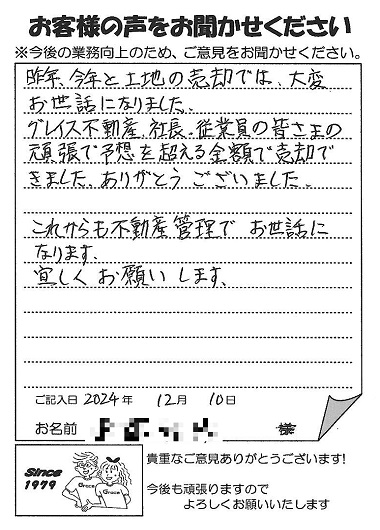 お客様の声をお聞かせください
※今後の業務向上のため、ご意見をお聞かせください。
昨年、今年と土地の売却では、大変
お世話になりました。
グレイス不動産、社長、従業員の皆さまの
頑張で予想を超える金額で売却で
きました、ありがとうございました。
これからも不動産管理でお世話に
なります。
宜しくお願いします。
ご記入日 2024年 12月 10日
お名前 様
Since
1979
Grace
Grace
貴重なご意見ありがとうございます!
今後も頑張りますので
よろしくお願いいたします